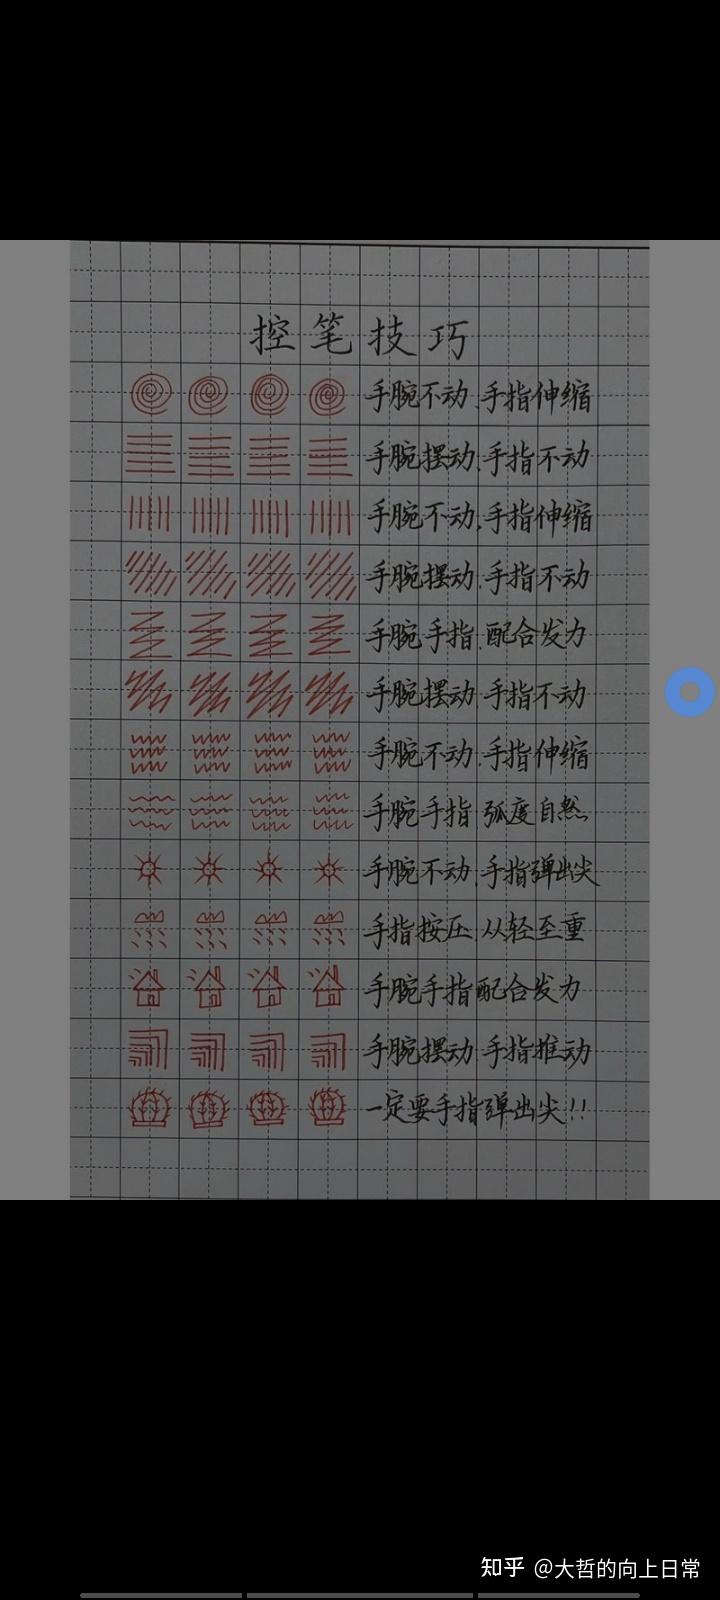 控笔技巧
手腕不动.手指伸缩
手腕摆动.手指不动
手腕不动.手指伸缩
手腕摆动.手指不动
手腕手指.配合发力
手腕摆动 手指不动
手腕不动.手指伸缩
手腕手指 弧度自然
手腕不动.手指弹出尖
手指按压 从轻至重
手腕手指配合发力
手腕摆动 手指推动
一定要手指弹出尖!!
知乎 @大哲的向上日常